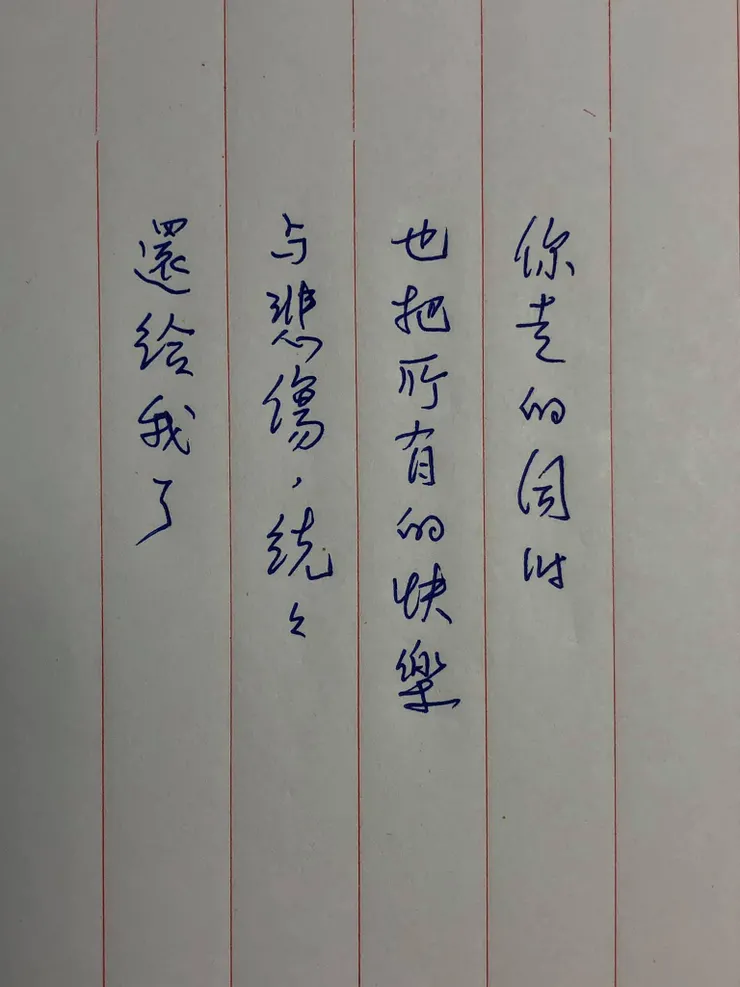 你走的同时
也把所有的快樂
与悲傷，统々
還给我了